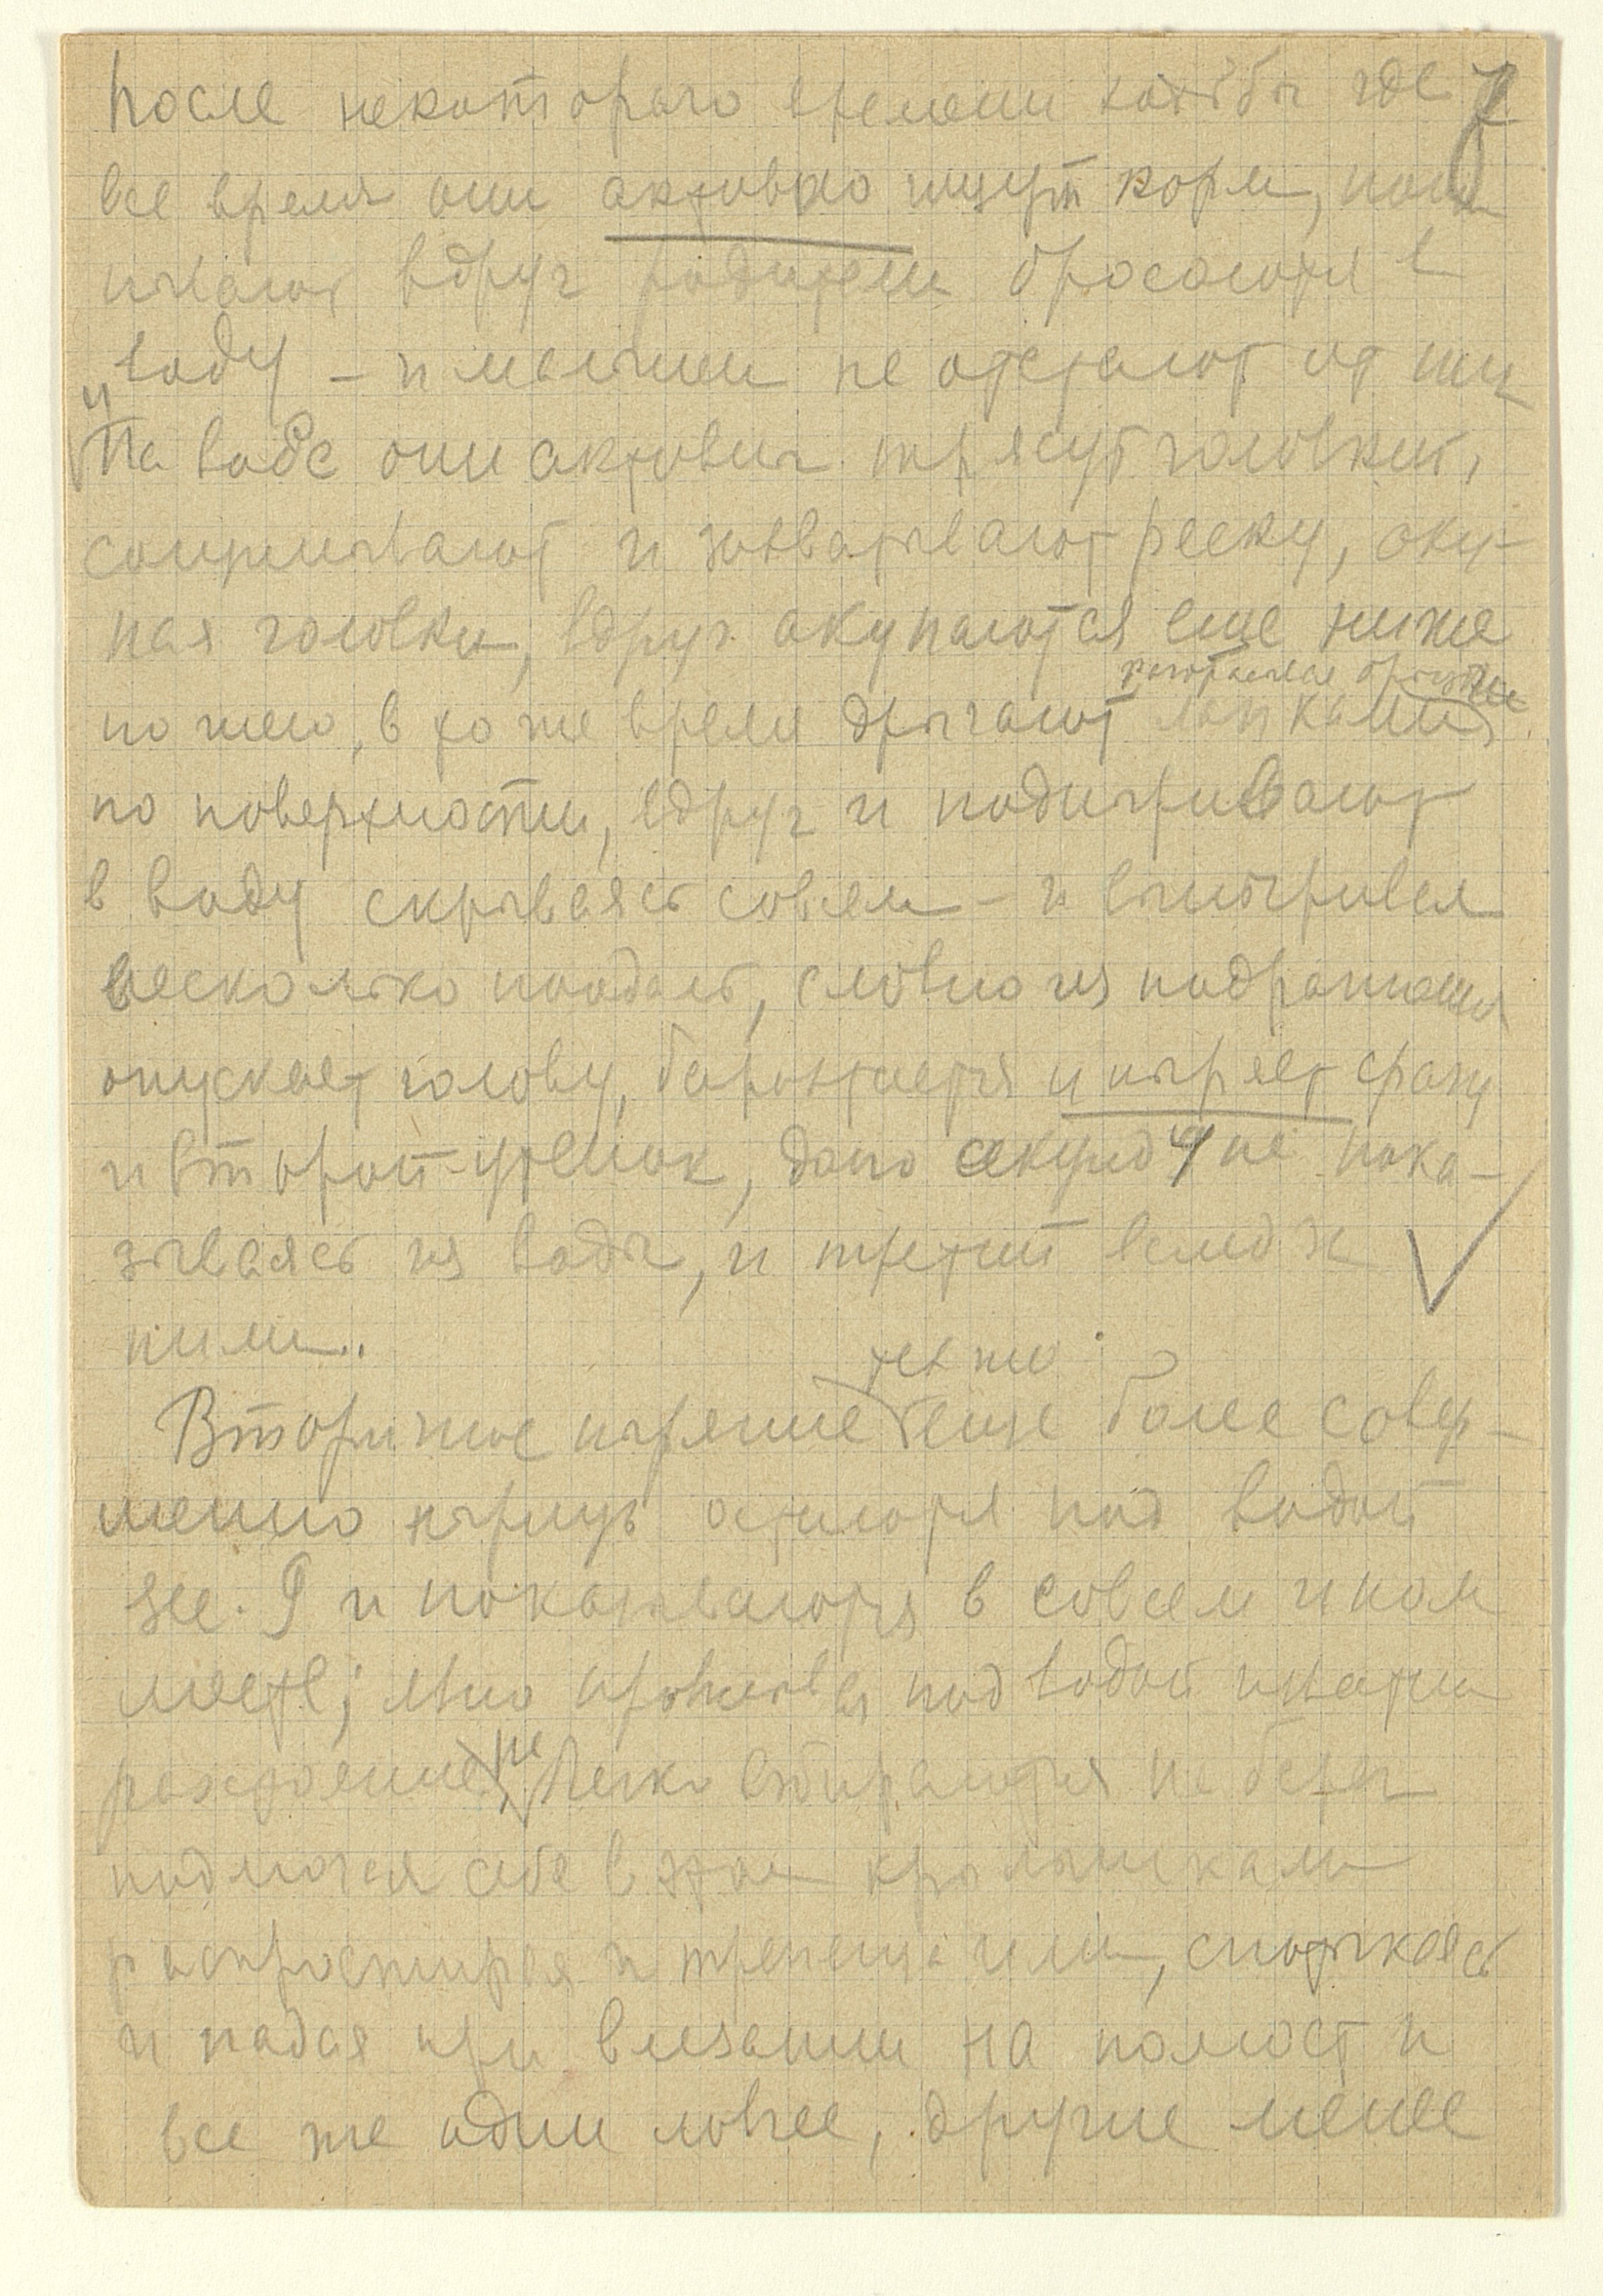 7
После некоторого времени ходьбы где
все время они активно ищут корм,
вдруг родители бросаются в
воду – и малыши не отстают от них
и
На воде они активны трясут головкой,
и захватывают ряску, оку-
ная головки, вдруг окунаются еще ниже
по шею, в то же время дрыгают лапками
по поверхности, вдруг и подныривают
в воду скрываясь совсем – и вынырнвея
несколько поодаль, словно из подражания
опускает голову, и ныряет сразу
и второй утенок, долго секунд 4 не пока-
зываясь из воды, и третий вслед за
ними..
тех же
Вторичное ныряние еще более совер-
шенно нырнув остаются под водой
sec. 9 и показываются в совсем ином
месте; явно под водой
не
расстояние, Легко взбираются на берег
помогая себе в этом крылышками
распростирая и трепеща ими, спотыкаясь
и падая при влезании на помост и
все же одни ловчее, другие менее